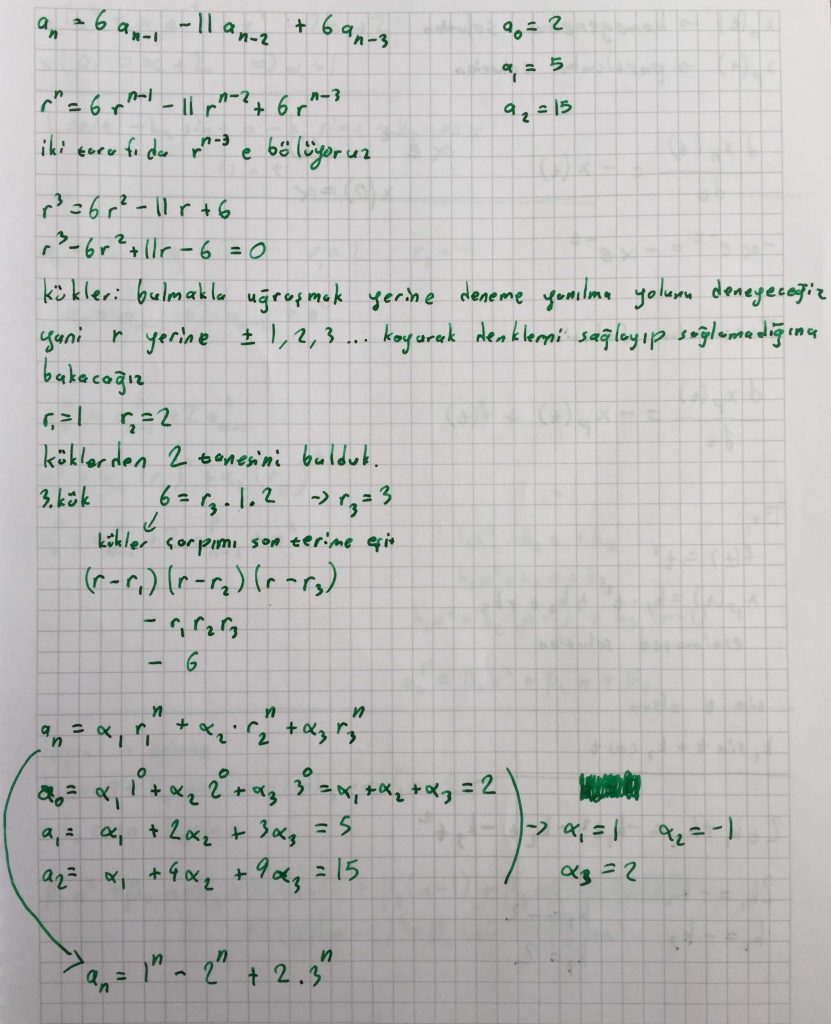 aₙ = 6 aₙ₋₁ - 11 aₙ₋₂ + 6 aₙ₋₃ a₀ = 2
a₁ = 5
rⁿ = 6 rⁿ⁻¹ - 11 rⁿ⁻² + 6 rⁿ⁻³ a₂ = 15
iki tarafıda rⁿ⁻³ e bölüyoruz
r³ = 6r² - 11 r + 6
r³ - 6r² + 11r - 6 = 0
kökleri bulmakla uğraşmak yerine deneme yanılma yolunu deneyeceğiz
yani r yerine ± 1, 2, 3 ... koyarak denklemi sağlayıp sağlamadığına
bakacağız
r₁ = 1 r₂ = 2
köklerden 2 tanesini bulduk.
3. kök 6 = r₃ . 1 . 2 -> r₃ = 3
kökler çarpımı son terime eşit
(r - r₁) (r - r₂) (r - r₃)
- r₁ r₂ r₃
- 6
aₙ = α₁ r₁ⁿ + α₂ · r₂ⁿ + α₃ r₃ⁿ
a₀ = α₁ 1⁰ + α₂ 2⁰ + α₃ 3⁰ = α₁ + α₂ + α₃ = 2
a₁ = α₁ + 2α₂ + 3α₃ = 5 -> α₁ = 1 α₂ = -1
a₂ = α₁ + 4α₂ + 9α₃ = 15 α₃ = 2
aₙ = 1ⁿ - 2ⁿ + 2 . 3ⁿ